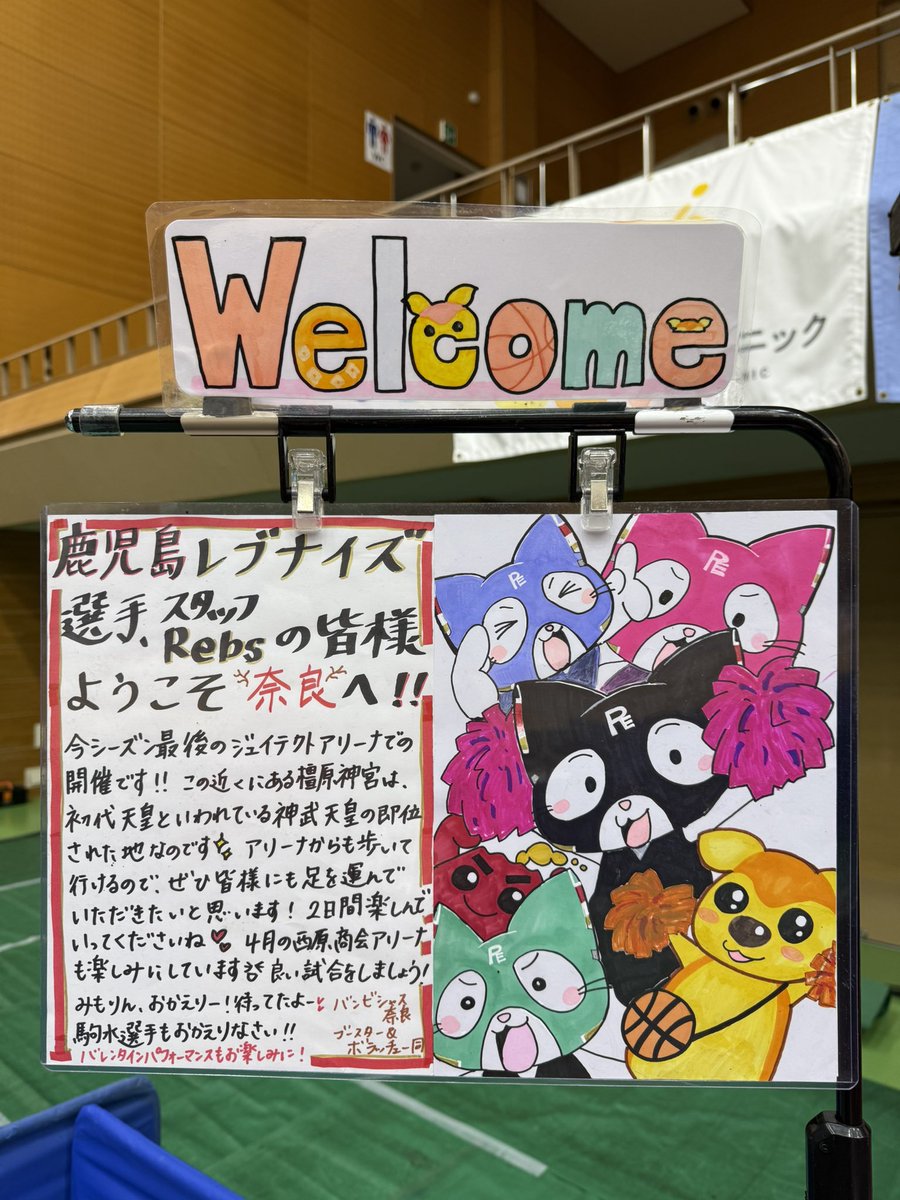 Welcome
ニック
鹿児島レブナイズ
選手、スタッフ
Rebsの皆様
ようこそ奈良へ!!
今シーズン最後のジェイテクトアリーナでの
開催です!! この近くにある橿原神宮は、
初代天皇といわれている神武天皇の即位
された地なのです アリーナからも歩いて
行けるので、ぜひ皆様にも足を運んで
いただきたいと思います! 2日間楽しんで
いってくださいね 4月の西原商会アリーナ
も楽しみにしています 良い試合をしましょう!
みもりん、おかえりー!待ってたよー
駒水選手もおかえりなさい!!
バレンタインパフォーマンスもお楽しみに!
バンビシャス
奈良
ブースター&
ボランティア一同
RE
RE
RE
RE